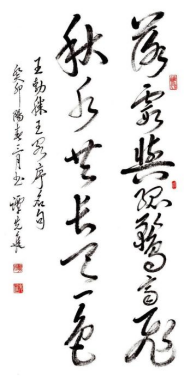 落霞與孤鶩齊飛
秋水共長天一色
王勃滕王閣序名句
癸卯陽春三月書 譚先